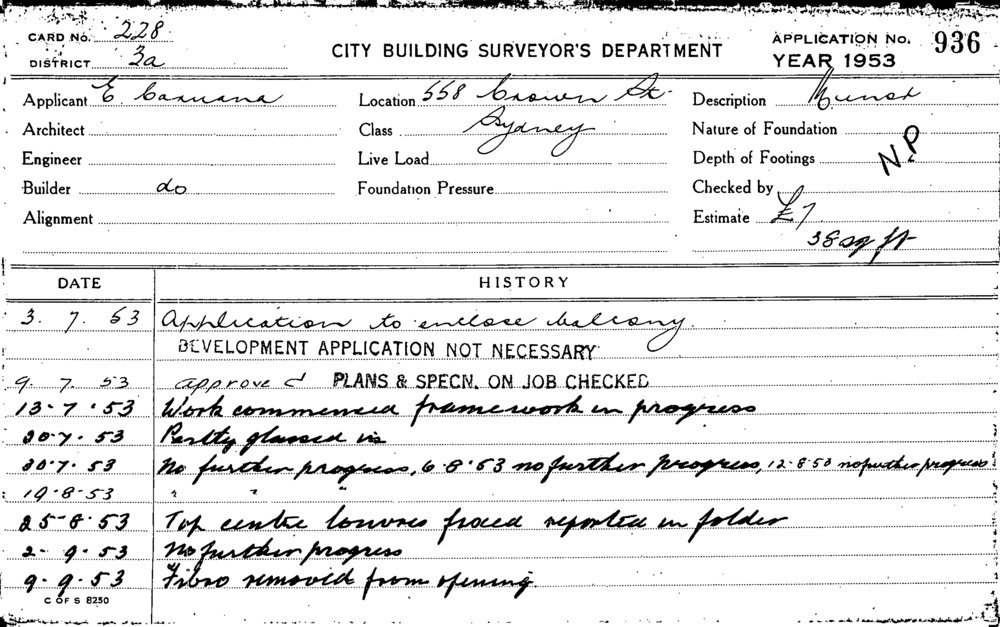 CARD No. 228
DISTRICT 3a
CITY BUILDING SURVEYOR'S DEPARTMENT
APPLICATION No. 936
YEAR 1953
Applicant E Caruana
Location 558 Crown St.
Sydney
Description Minor
Architect
Class
Nature of Foundation
Engineer
Live Load
Depth of Footings
N.P
Builder do
Foundation Pressure
Checked by
Alignment
Estimate £7
38 sq ft
DATE HISTORY
3. 7. 53 Application to enclose balcony.
DEVELOPMENT APPLICATION NOT NECESSARY
9. 7. 53 approved PLANS & SPECN. ON JOB CHECKED
13-7-53 Work commenced framework in progress
20-7-53 Partly glassed in
30-7-53 No further progress, 6-8-53 no further progress, 12-8-53 no further progress
19-8-53 " " "
25-8-53 Top centre louvres fixed reported in folder
2-9-53 No further progress
9-9-53 Fibro removed from opening.
C OF S 8250